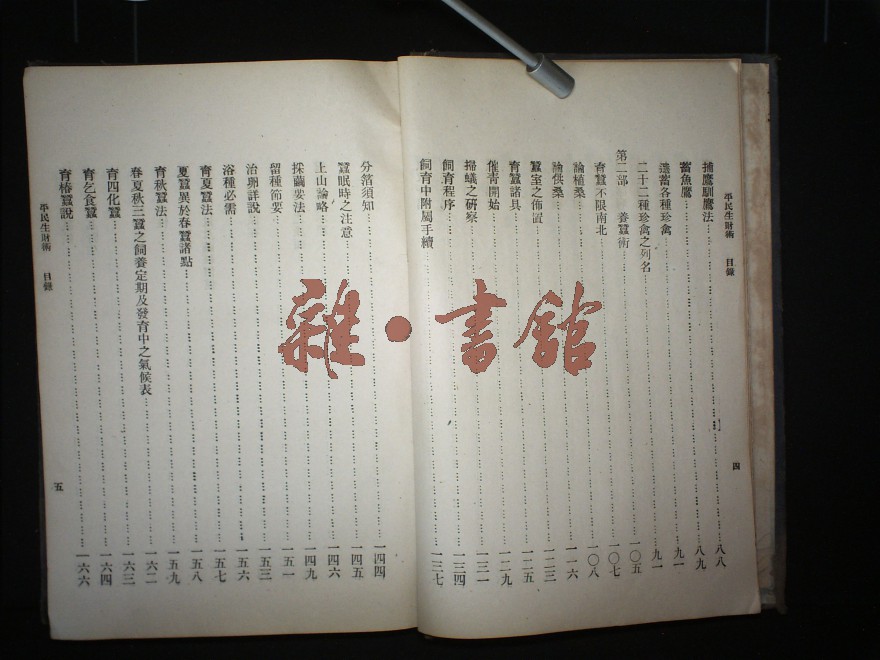 平民生財術 目錄
四
捕鷹馴鷹法……八八
蓄魚鷹……八九
選蓄各種珍禽……九一
二十二種珍禽之列名……九一
第二部 養蠶術……一〇五
育蠶不限南北……一〇七
論植桑……一〇八
論供桑……一一六
蠶室之佈置……一二三
育蠶諸具……一二五
催青開始……一二九
掃蟻之研察……一三一
飼育程序……一三四
飼育中附屬手續……一三七
分箔須知……一四四
蠶眠時之注意……一四五
上山論略……一四六
採繭要法……一四九
留種節要……一五一
治蛾詳說……一五三
浴種必需……一五六
育夏蠶法……一五七
夏蠶異於春蠶諸點……一五八
育秋蠶法……一五九
春夏秋三蠶之飼養定期及發育中之氣候表……一六二
育四化蠶……一六三
育乞食蠶……一六四
育椿蠶說……一六六
平民生財術 目錄
五
雜·書館